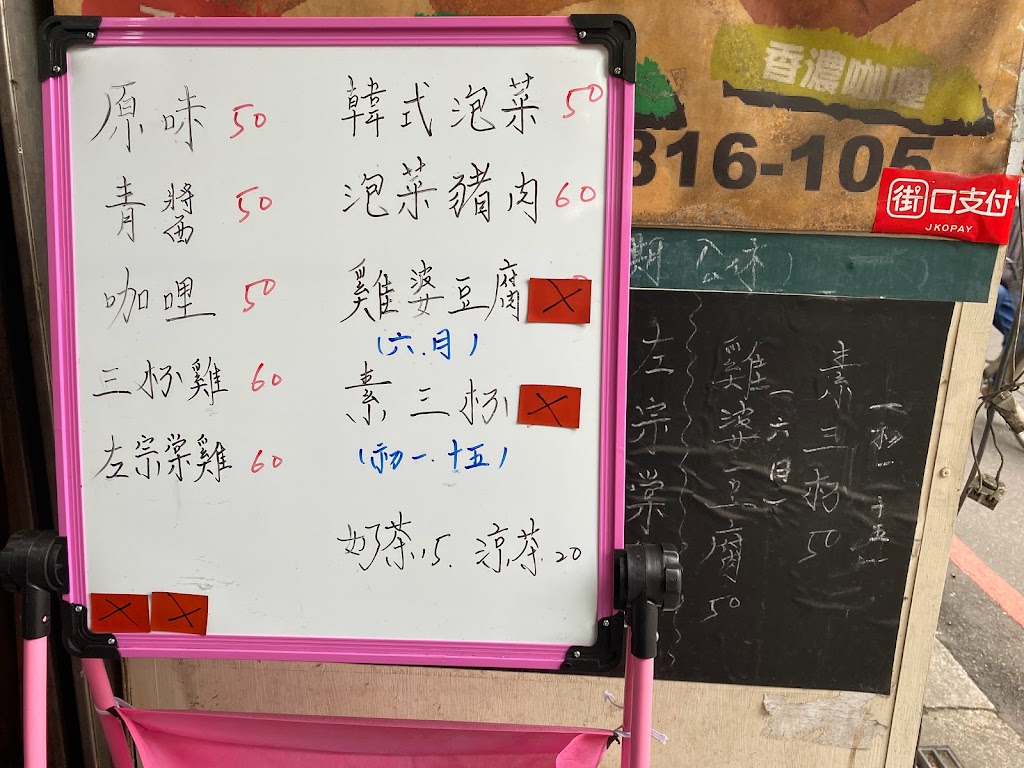 原味 50
青醬 50
咖哩 50
三杯雞 60
左宗棠雞 60
韓式泡菜 50
泡菜豬肉 60
雞婆豆腐 X
(六.日)
素三杯 X
(初一.十五)
奶茶15. 涼茶20
X X
香濃咖哩
816-105
街口支付
JKOPAY
期公休)
素三杯50
一初一十五一
雞婆豆腐50
一六日一
左宗棠